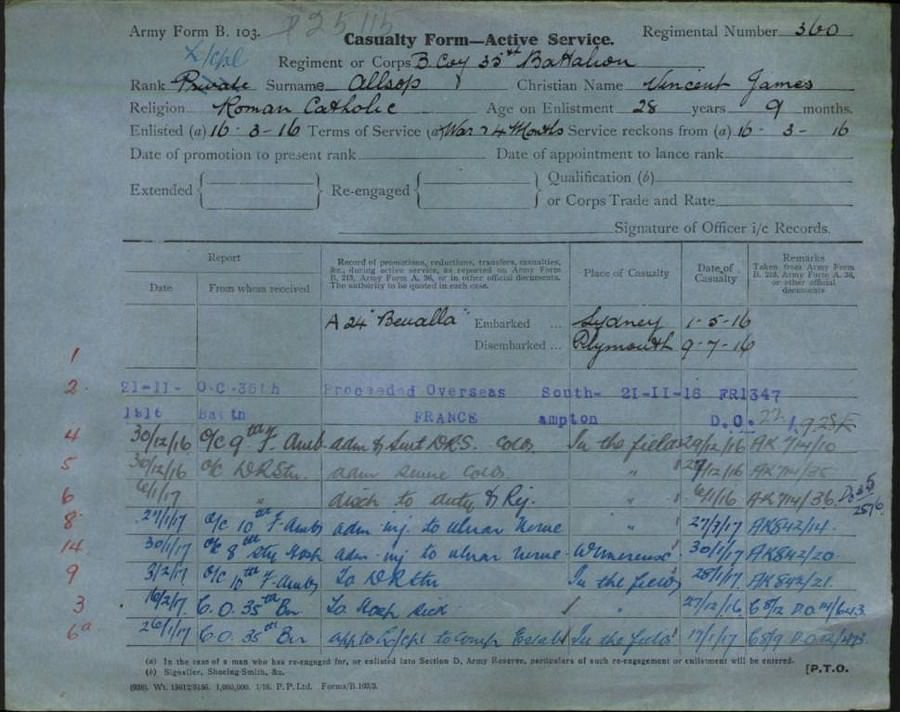 Army Form B. 103.
Casualty Form—Active Service.
Regimental Number 360
L/cpl
Regiment or Corps B Coy 35th Battalion
Rank Private Surname Allsop Christian Name Vincent James
Religion Roman Catholic Age on Enlistment 28 years 9 months.
Enlisted (a) 16-3-16 Terms of Service (a) War & 4 Months Service reckons from (a) 16-3-16
Date of promotion to present rank Date of appointment to lance rank
Extended Re-engaged Qualification (b)
or Corps Trade and Rate
Signature of Officer i/c Records.
Report
Date From whom received
Record of promotions, reductions, transfers, casualties,
&c., during active service, as reported on Army Form
B. 213, Army Form A. 36, or in other official documents.
The authority to be quoted in each case.
Place of Casualty
Date of
Casualty
Remarks
Taken from Army Form
B. 213, Army Form A. 36,
or other official
documents
A 24 "Benalla" Embarked ... Sydney 1-5-16
Disembarked ... Plymouth 9-7-16
1
2 21-11- O.C. 35th Proceeded Overseas South- 21-11-16 FR1347
1916 Battn FRANCE ampton D.O.
4 30/12/16 O/C 9th F. Amb adm & Sent DRS. Colds In the field 29/12/16 AK 714/10
5 30/12/16 O/C DR Stn. adm Colds " 29/12/16 AK 714/35
6 6/1/17 " disch to duty & Rej. " 6/1/16 AK 714/36
8 27/1/17 O/C 10th F Amb adm inj. to ulnar nerve " AK842/14
14 30/1/17 O/C 8th Sty Hosp adm inj to ulnar nerve Wimereux 30/1/17 AK842/20
9 3/2/17 O/C 10th F. Amb To DR Stn In the field 28/1/17 AK842/21
3 C.O. 35th Bn To Hosp Sick " 27/12/16
6a 26/1/17 C.O. 35th Bn app to L/cpl to comp Estab In the field 17/1/17
(a) In the case of a man who has re-engaged for, or enlisted into Section D, Army Reserve, particulars of such re-engagement or enlistment will be entered.
(b) Signaller, Shoeing-Smith, &c.
[P.T.O.